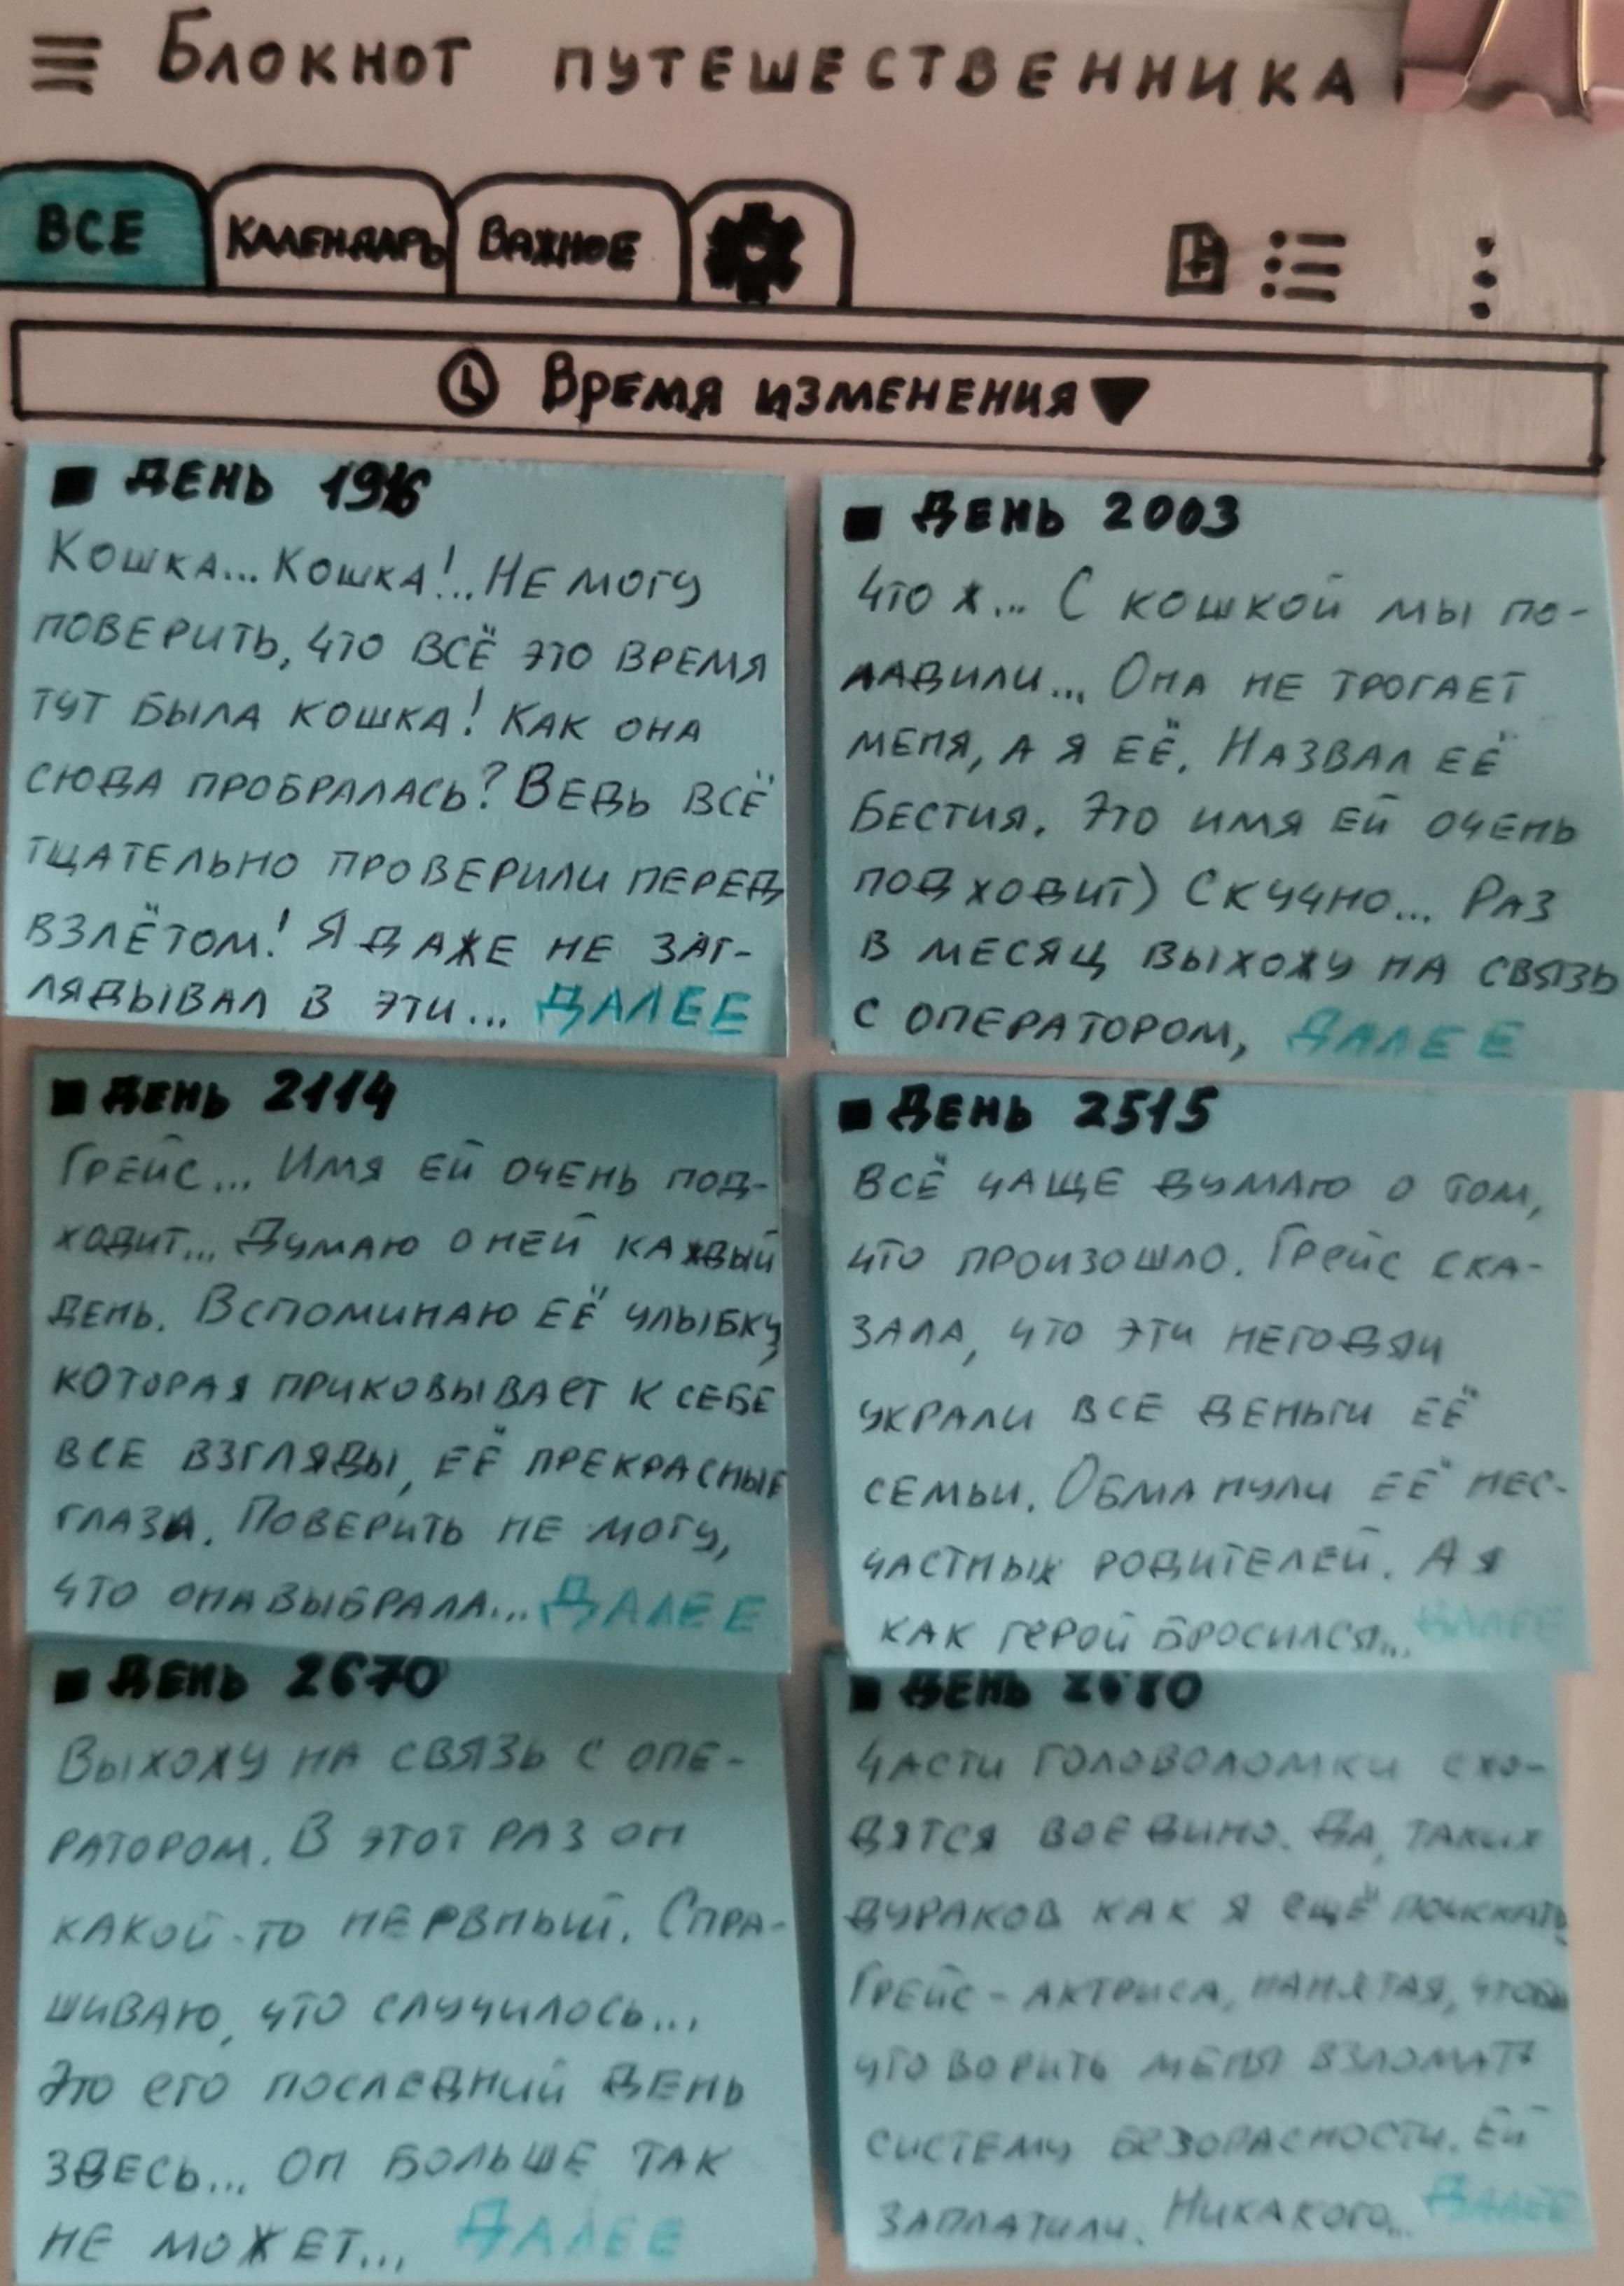 Блокнот путешественника
ВСЕ
Календарь
Важное
Время изменения
День 1916
Кошка... Кошка!.. Не могу
поверить, что всё это время
тут была кошка! Как она
сюда пробралась? Ведь всё
тщательно проверили перед
взлётом! Я даже не заг-
лядывал в эти... Далее
День 2003
Что ж... С кошкой мы по-
ладили... Она не трогает
меня, а я её. Назвал её
Бестия. Это имя ей очень
подходит) Скучно... Раз
в месяц выхожу на связь
с оператором, Далее
День 2114
Грейс... Имя ей очень под-
ходит... Думаю о ней каждый
день. Вспоминаю её улыбку,
которая приковывает к себе
все взгляды, её прекрасные
глаза. Поверить не могу,
что она выбрала... Далее
День 2515
Всё чаще думаю о том,
что произошло. Грейс ска-
зала, что эти негодяи
украли все деньги её
семьи. Обманули её нес-
частных родителей. А я
как герой бросился... Далее
День 2670
Выхожу на связь с опе-
ратором. В этот раз он
какой-то нервный. Спра-
шиваю, что случилось...
Это его последний день
здесь... Он больше так
не может... Далее
День 2680
Части головоломки схо-
дятся воедино. Да, таких
дураков как я ещё поискать
Грейс - актриса, нанятая, чтобы
уговорить меня взломать
систему безопасности. Ей
заплатили. Никакого... Далее